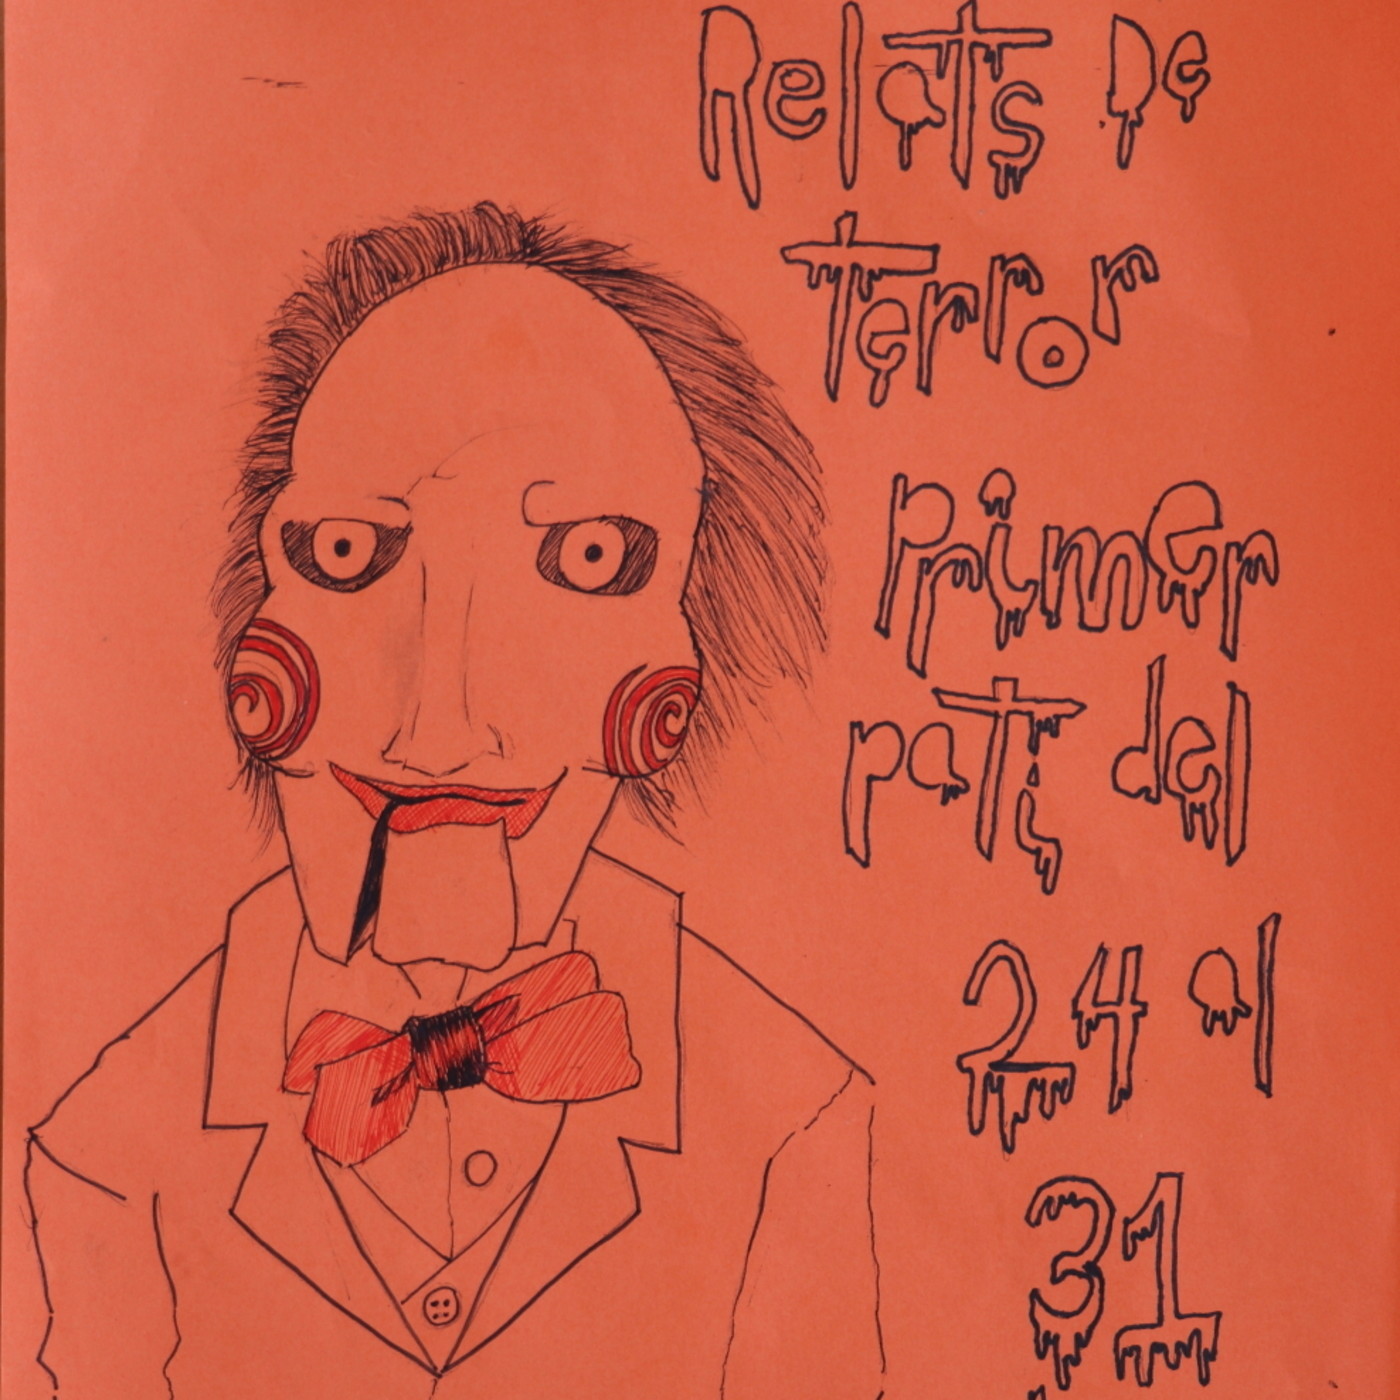 Relats De
terror
primer
pati del
24 al
31